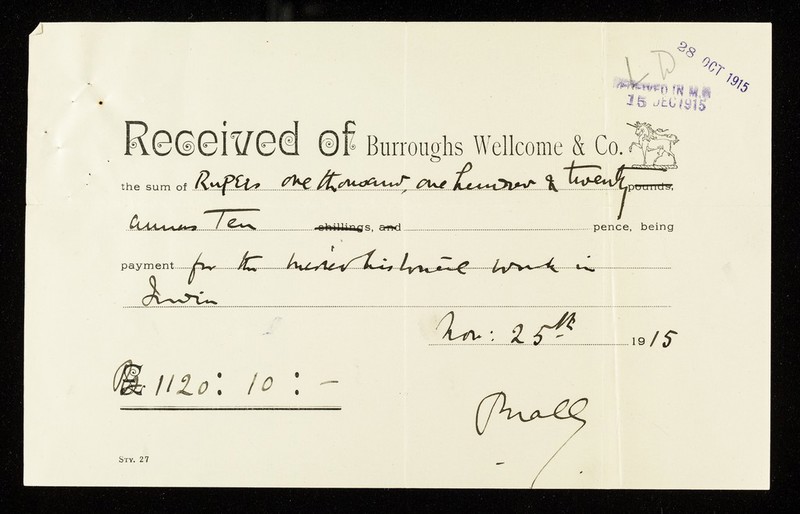 28 OCT 1915
RECEIVED IN M.
15 DEC 1915
Received of Burroughs Wellcome & Co.
the sum of Rupees one thousand, one hundred & twenty pounds,
annas Ten shillings, and pence, being
payment for the medico historical work in
Nov: 25th 1915
Rs. 1120: 10: —
Sty. 27